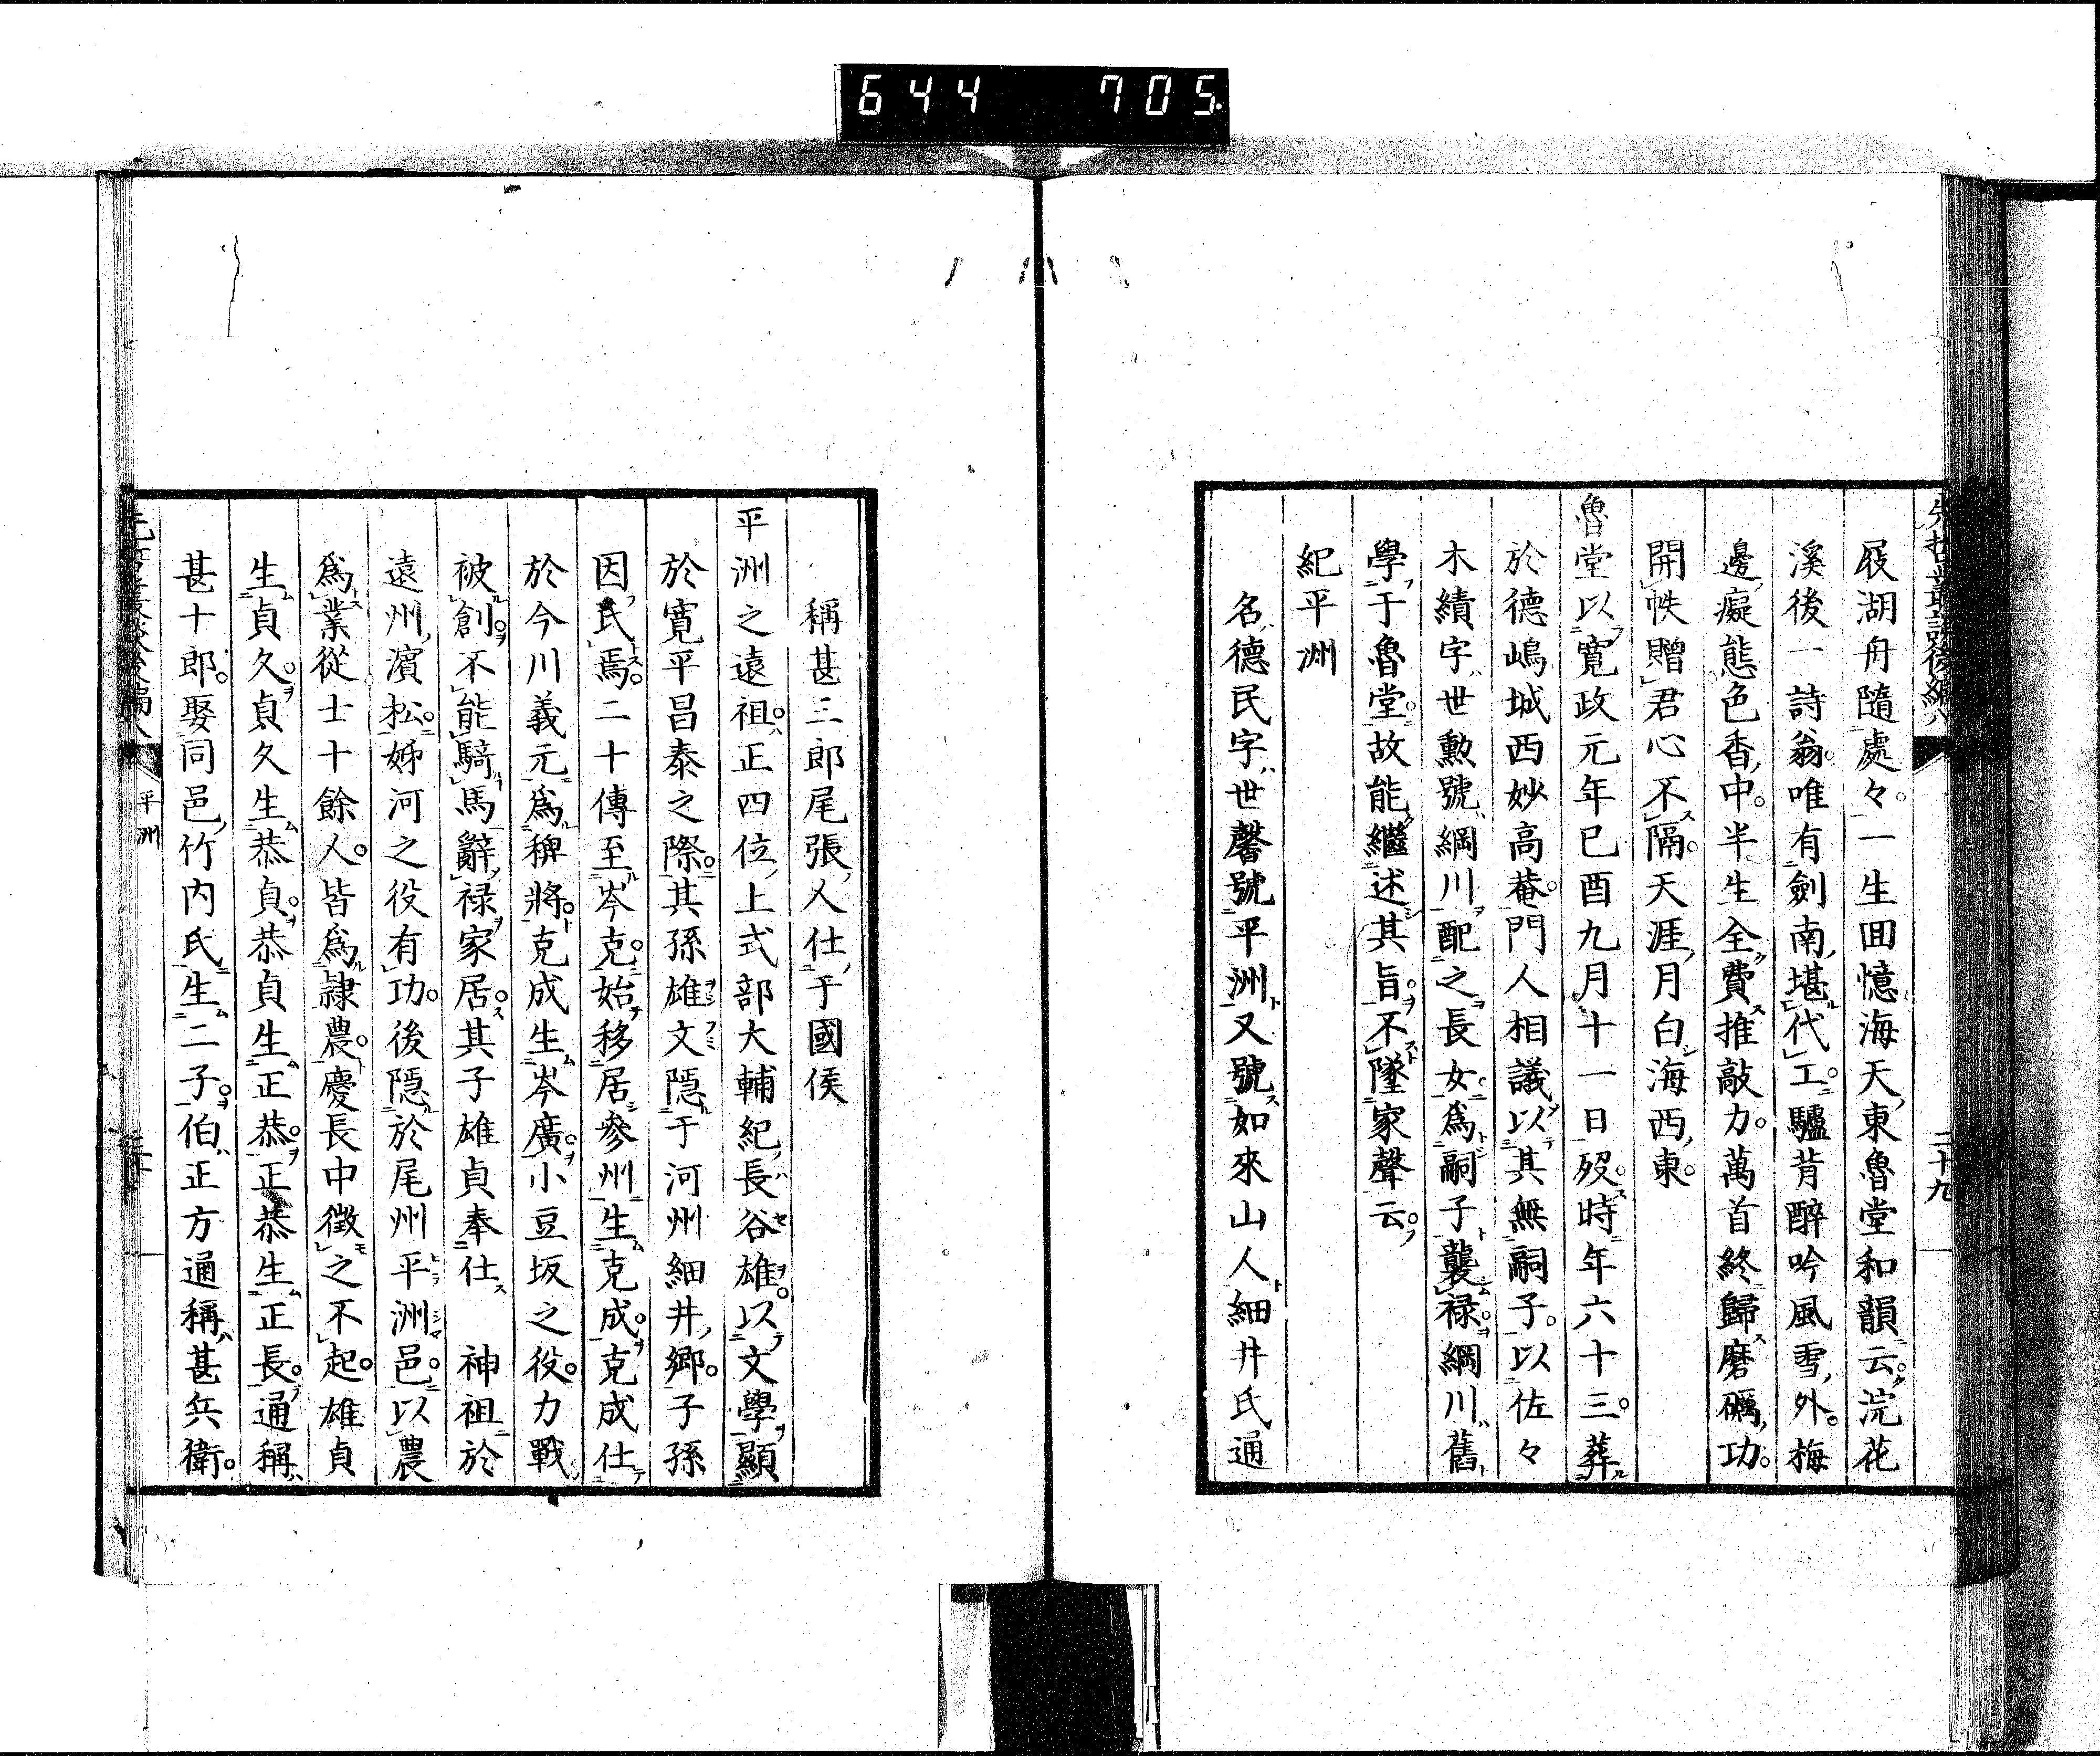 644 705
先哲叢談後編八 二十九
屐湖舟隨處々。一生回憶海天東魯堂和韻云。浣花
溪後一詩翁。唯有劍南堪代工。驢背醉吟風雪外。梅
邊癡態色香中。半生全費推敲力。萬首終歸磨礪功。
開帙贈君心不隔。天涯月白海西東。
魯堂以寛政元年己酉九月十一日歿。時年六十三。葬
於德嶋城西妙高菴。門人相議以其無嗣子。以佐々
木績字世勲號綱川配之長女。爲嗣子襲祿。綱川舊
學于魯堂。故能繼述其旨。不墜家聲云。
紀平洲
名德民字世馨號平洲又號如來山人細井氏通
稱甚三郎尾張人仕于國侯
平洲之遠祖。正四位上式部大輔紀長谷雄。以文學顯
於寛平昌泰之際。其孫雄文隱于河州細井鄉。子孫
因氏焉。二十傳至岑克。始移居參州生克成。克成仕
於今川義元爲稗將。克成生岑廣。小豆坂之役。力戰
被創。不能騎馬辭祿家居。其子雄貞奉仕 神祖於
遠州濱松。姊河之役有功。後隱於尾州平洲邑。以農
爲業從士十餘人。皆爲隷農。慶長中徵之不起。雄貞
生貞久。貞久生恭貞。恭貞生正恭。正恭生正長。通稱
甚十郎。娶同邑竹内氏生二子。伯正方通稱甚兵衛。
平洲